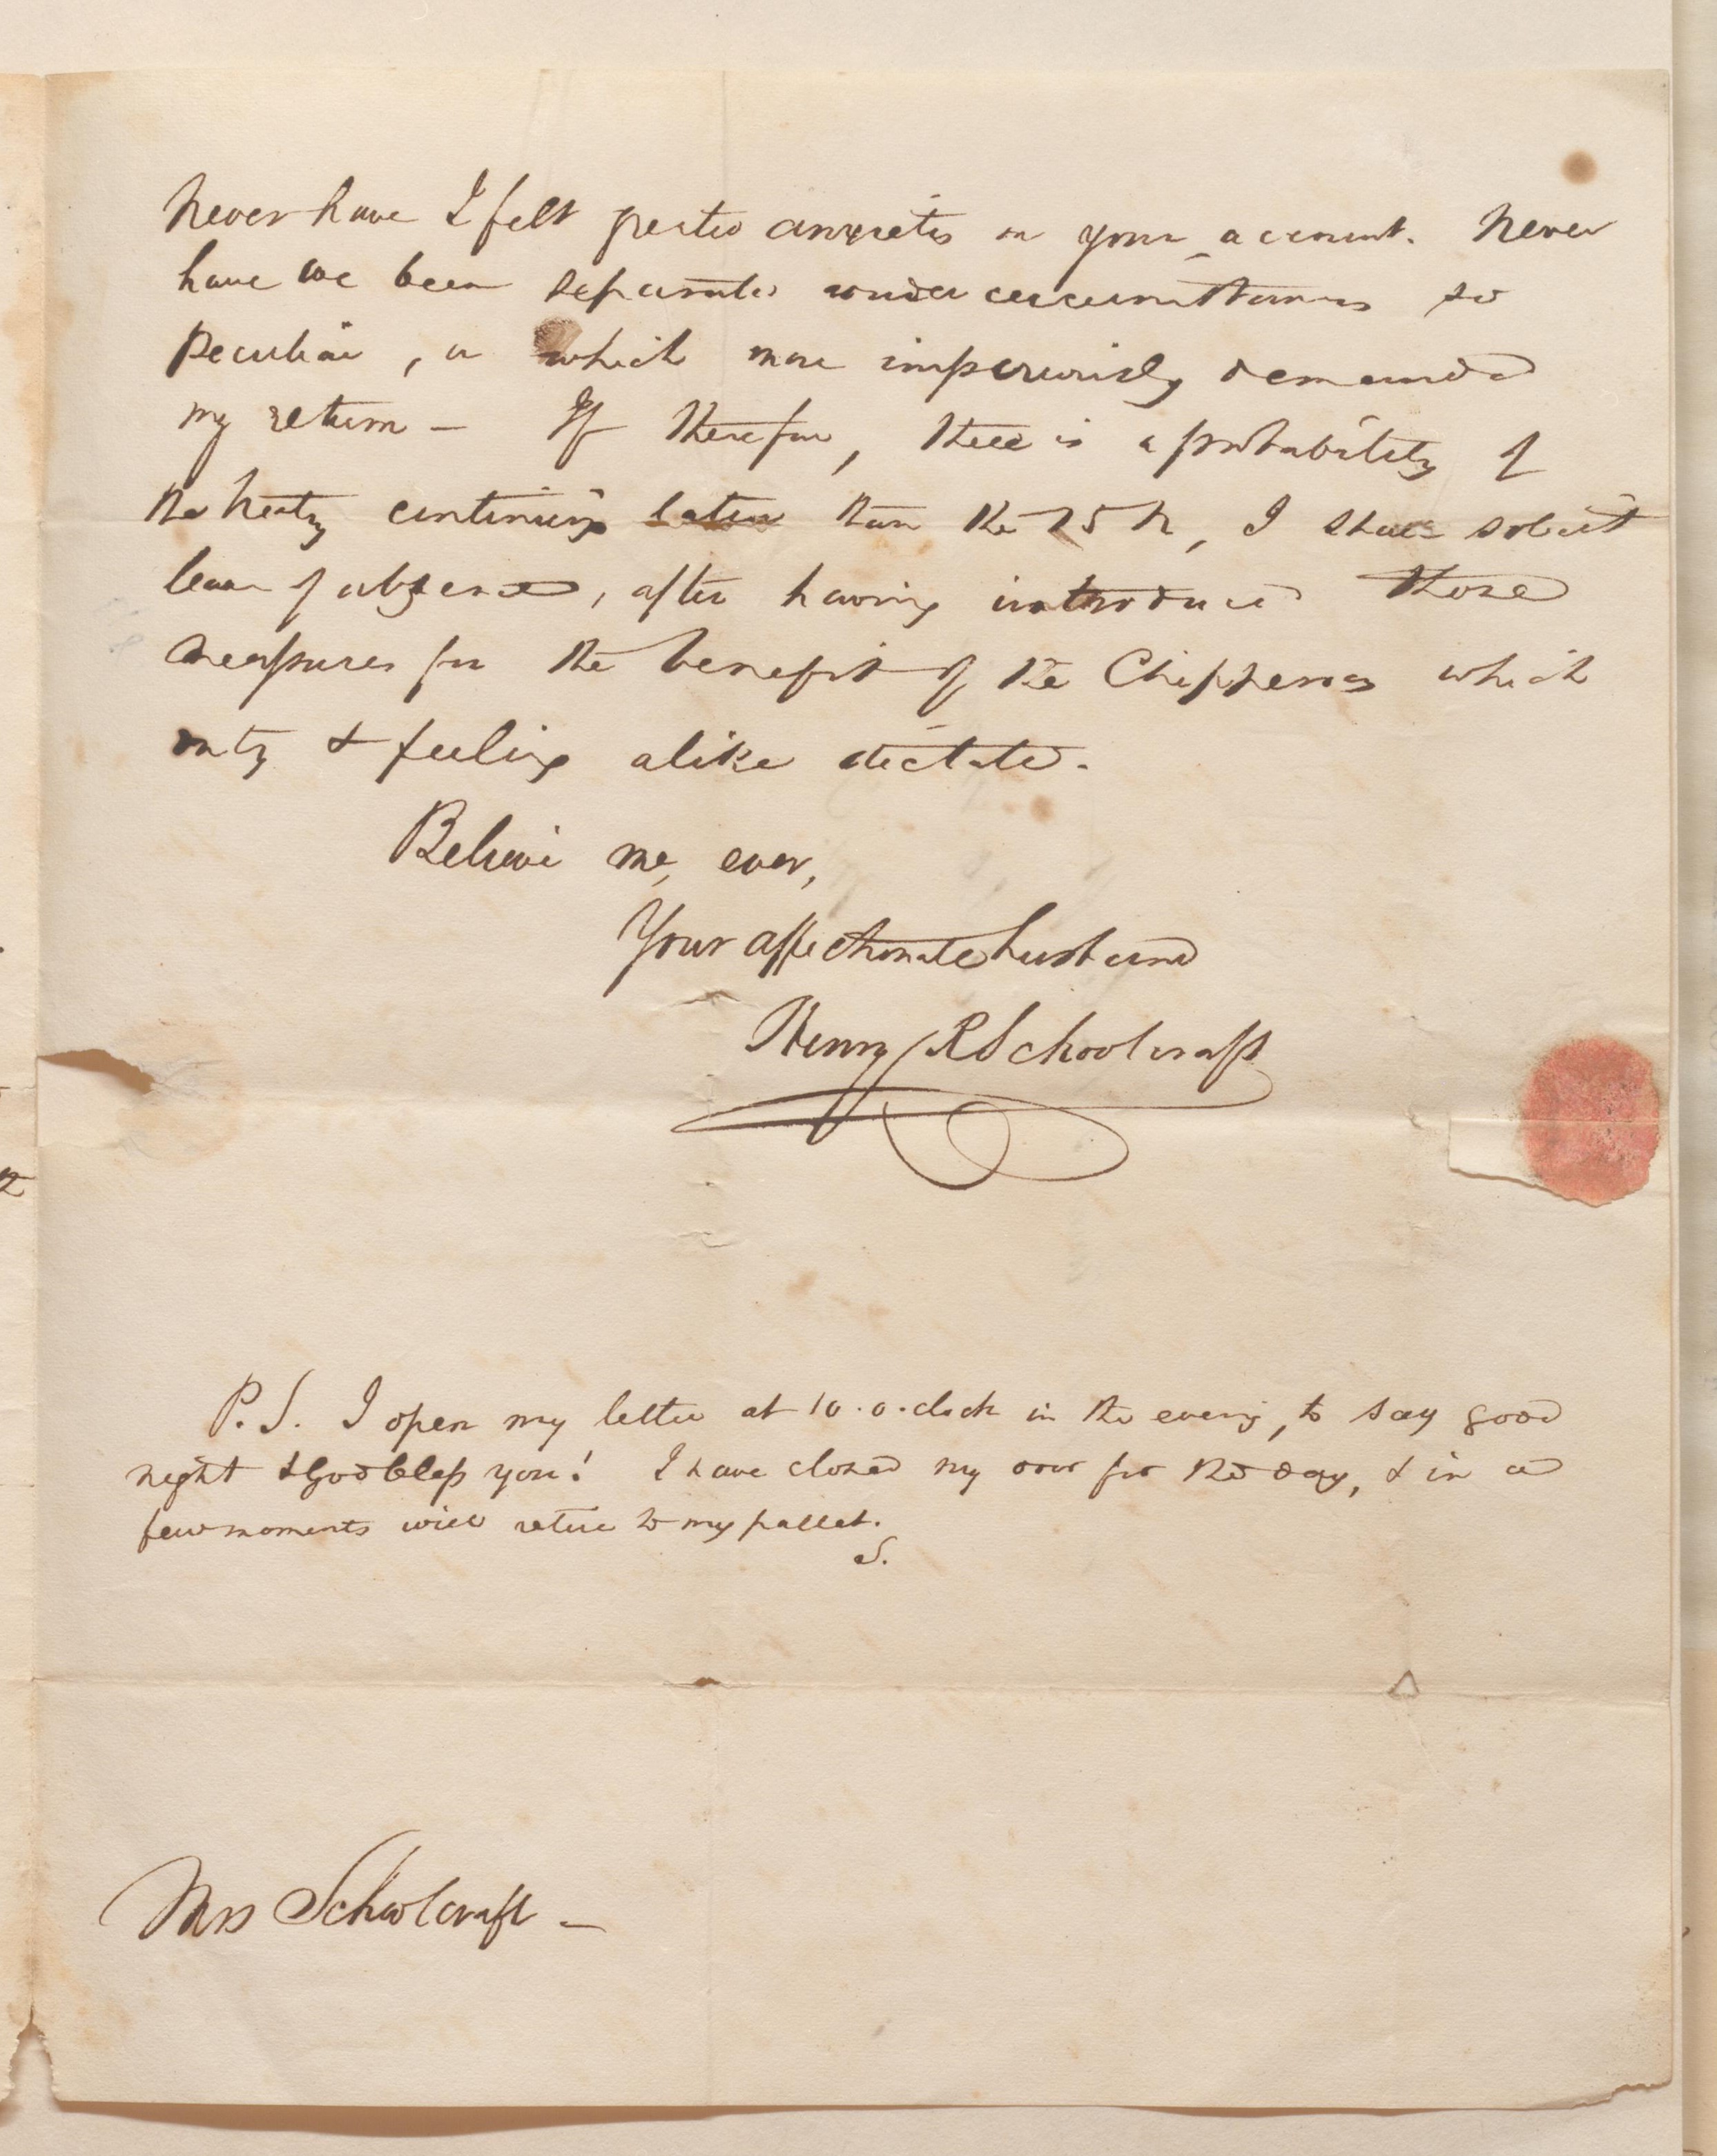 Never have I felt greater anxieties on your account. Never
have we been separated under circumstances so
peculiar, or which more imperiously demanded
my return – If therefore, there is a probability of
the treaty continuing later than the 25th, I shall solicit
leave of absence, after having introduced those
measures for the benefit of the Chippewas which
duty & feeling alike dictate.
Believe me, ever,
Your affectionate husband
Henry R Schoolcraft
P.S. I open my letter at 10.o.clock in the evening, to say good
night & God bless you! I have closed my door for the day, & in a
few moments will retire to my pallet.
S.
Mrs Schoolcraft –